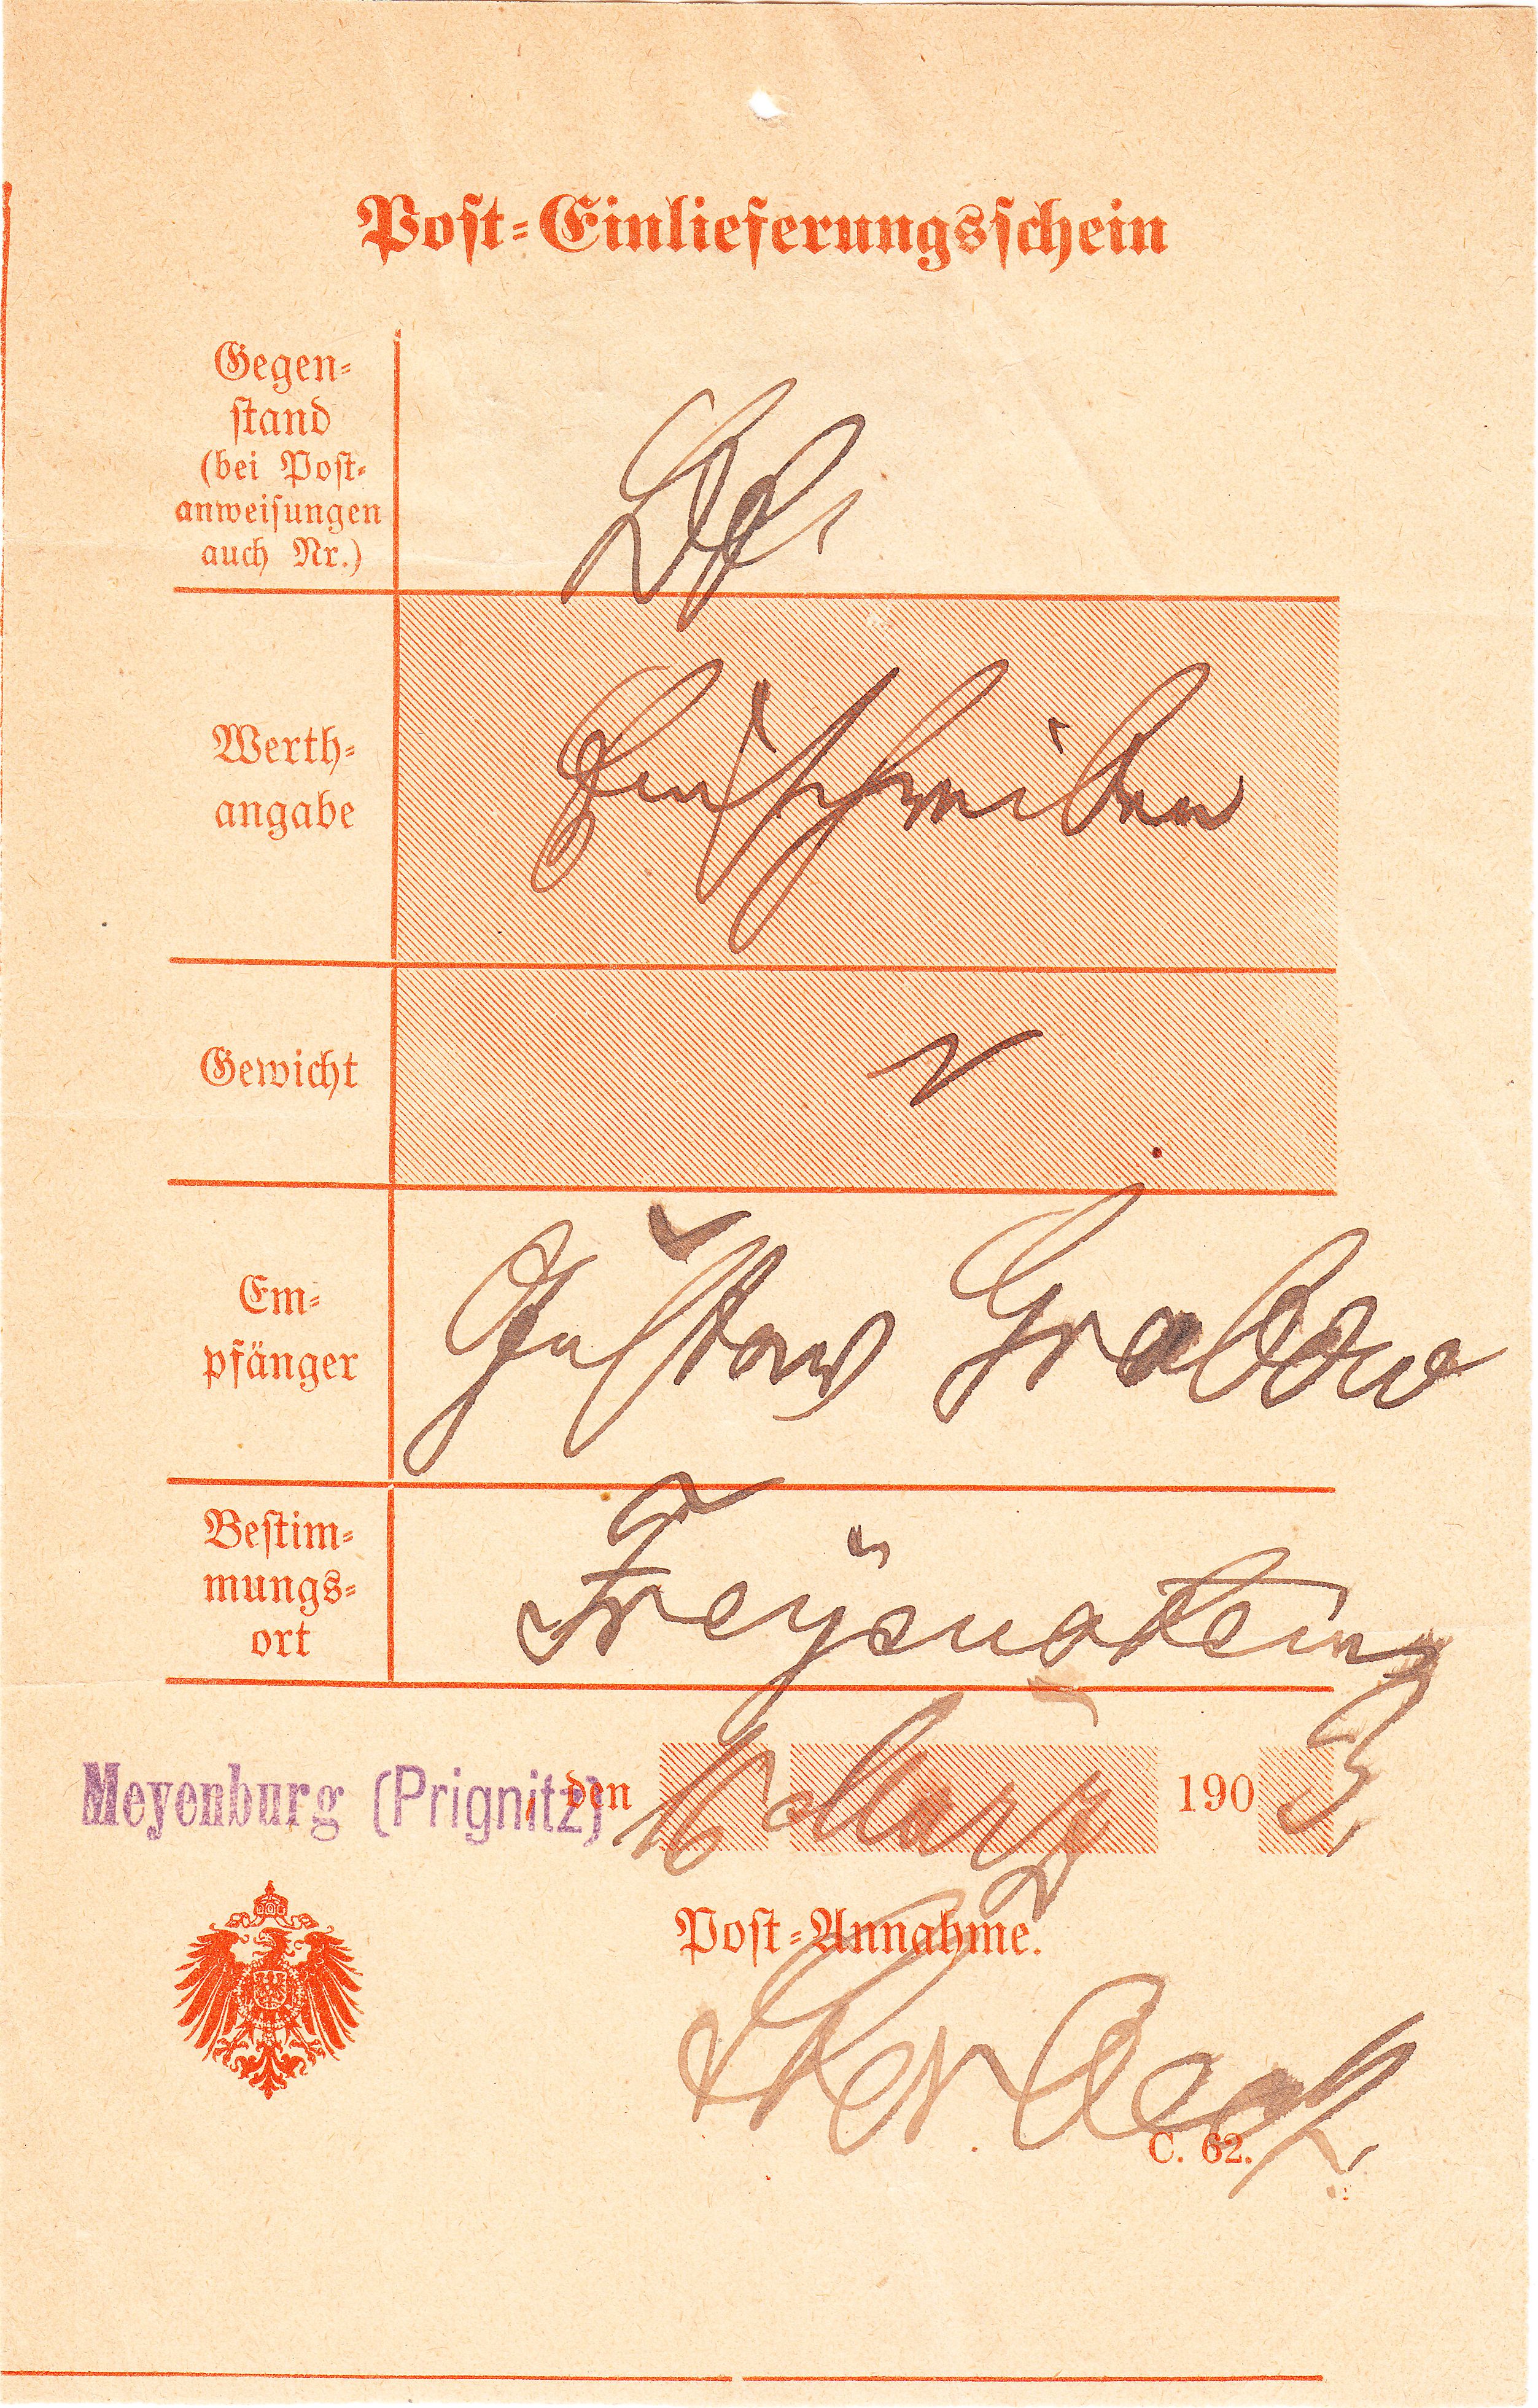 Post-Einlieferungsschein
Gegen-
stand
(bei Post-
anweisungen
auch Nr.)
Werth-
angabe
Einschreiben
Gewicht
Em-
pfänger
Gustav Grabow
Bestim-
mungs-
ort
Freÿenstein
Meyenburg (Prignitz) den 16 März 1903
Post-Annahme.
C. 62.